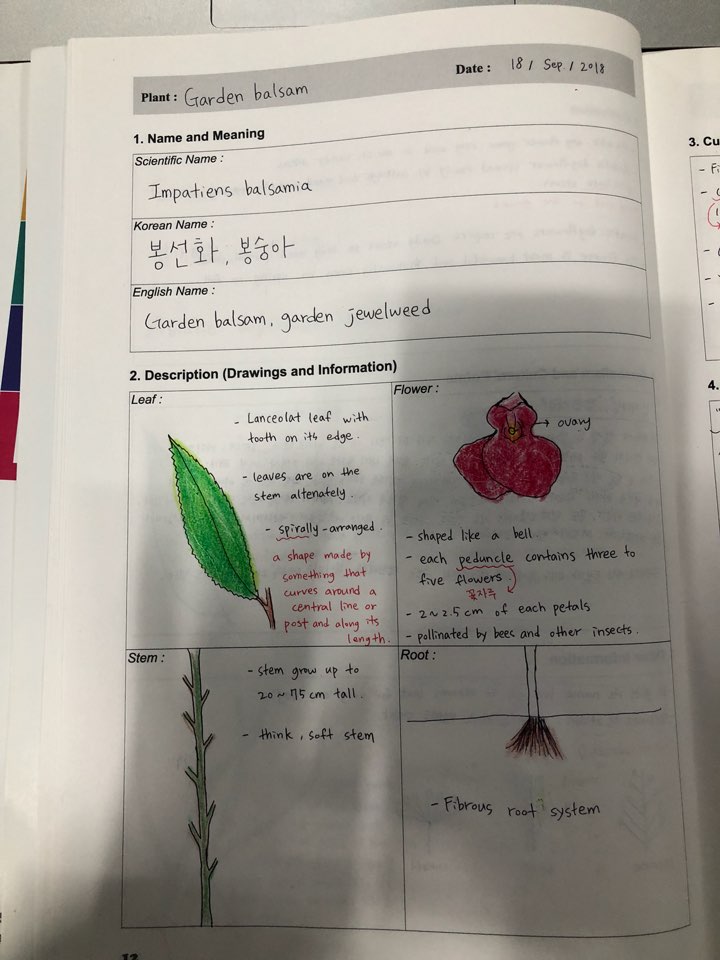 Plant : Garden balsam
Date : 18 / Sep. / 2018
1. Name and Meaning
Scientific Name :
Impatiens balsamia
Korean Name :
봉선화, 봉숭아
English Name :
Garden balsam, garden jewelweed
2. Description (Drawings and Information)
Leaf :
- Lanceolat leaf with
tooth on its edge.
- leaves are on the
stem altenately.
- spirally-arranged.
a shape made by
something that
curves around a
central line or
post and along its
length.
Flower :
→ ovary
- shaped like a bell.
- each peduncle contains three to
five flowers.
꽃자루
- 2~2.5 cm of each petals
- pollinated by bees and other insects.
Stem :
- stem grow up to
20 ~ 75 cm tall.
- think, soft stem
Root :
- Fibrous root system
3. Cu
4.